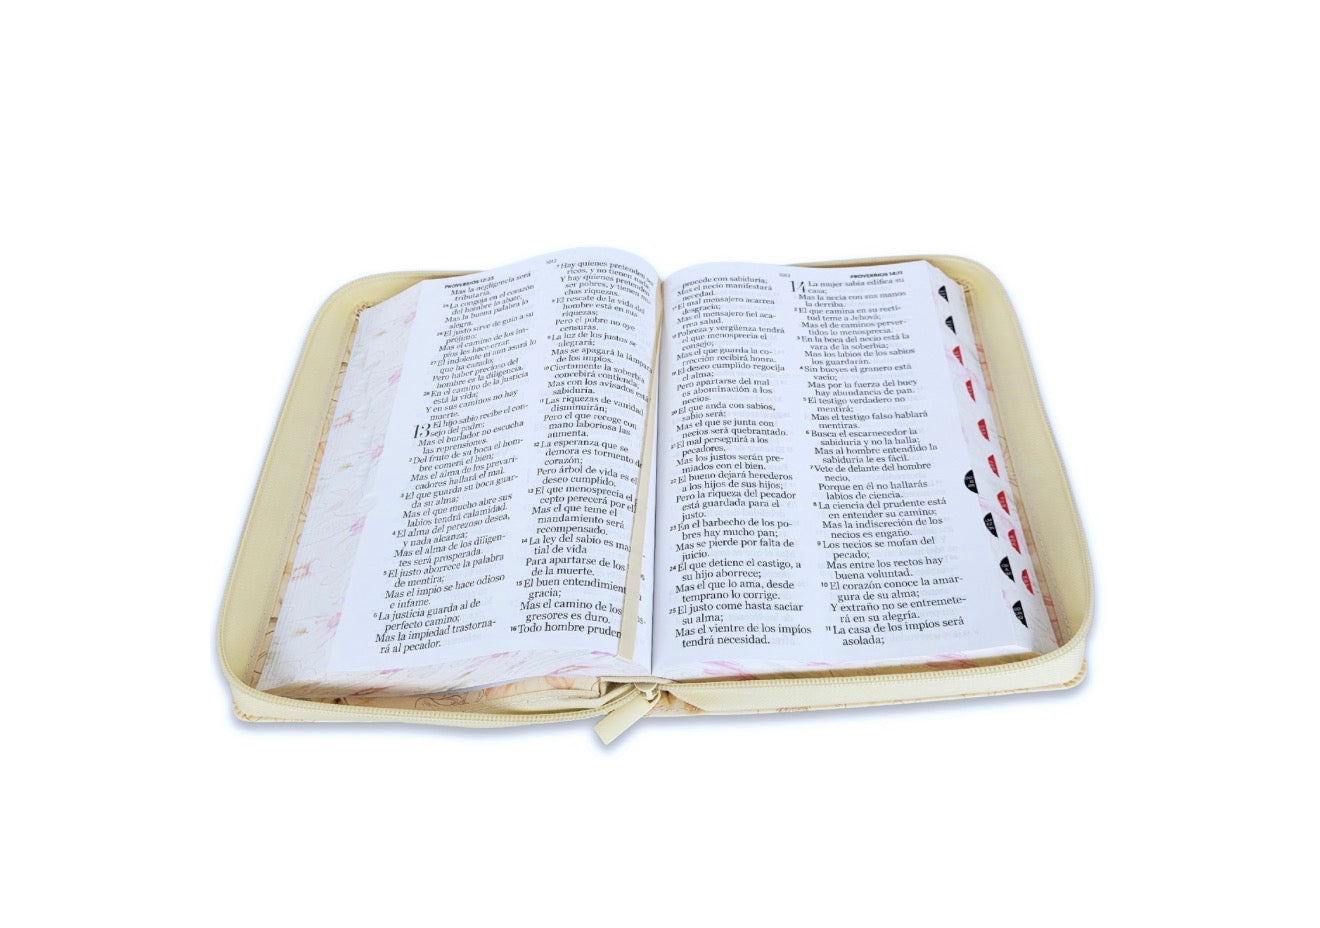 PROVERBIOS 12:25
Mas la negligencia será
tributaria.
25 La congoja en el corazón
del hombre lo abate;
Mas la buena palabra lo
alegra.
26 El justo sirve de guía a su
prójimo;
Mas el camino de los im-
píos les hace errar.
27 El indolente ni aun asará lo
que ha cazado;
Pero haber precioso del
hombre es la diligencia.
28 En el camino de la justicia
está la vida;
Y en sus caminos no hay
muerte.
13 El hijo sabio recibe el con-
sejo del padre;
Mas el burlador no escucha
las reprensiones.
2 Del fruto de su boca el hom-
bre comerá el bien;
Mas el alma de los prevari-
cadores hallará el mal.
3 El que guarda su boca guar-
da su alma;
Mas el que mucho abre sus
labios tendrá calamidad.
4 El alma del perezoso desea,
y nada alcanza;
Mas el alma de los diligen-
tes será prosperada.
5 El justo aborrece la palabra
de mentira;
Mas el impío se hace odioso
e infame.
6 La justicia guarda al de
perfecto camino;
Mas la impiedad trastorna-
rá al pecador.
1012
7 Hay quienes pretenden
ricos, y no tienen nada;
Y hay quienes pretenden
ser pobres, y tienen mu-
chas riquezas.
8 El rescate de la vida del
hombre está en sus
riquezas;
Pero el pobre no oye
censuras.
9 La luz de los justos se
alegrará;
Mas se apagará la lámpara
de los impíos.
10 Ciertamente la soberbia
concebirá contienda;
Mas con los avisados está
sabiduría.
11 Las riquezas de vanidad
disminuirán;
Pero el que recoge con
mano laboriosa las
aumenta.
12 La esperanza que se
demora es tormento de
corazón;
Pero árbol de vida es el
deseo cumplido.
13 El que menosprecia el
cepto perecerá por el
Mas el que teme el
mandamiento será
recompensado.
14 La ley del sabio es ma
tial de vida
Para apartarse de los
de la muerte.
15 El buen entendimient
gracia;
Mas el camino de los
gresores es duro.
16 Todo hombre pruden
1013
procede con sabiduría;
Mas el necio manifestará
necedad.
17 El mal mensajero acarrea
desgracia;
Mas el mensajero fiel aca-
rrea salud.
18 Pobreza y vergüenza tendrá
el que menosprecia el
consejo;
Mas el que guarda la co-
rrección recibirá honra.
19 El deseo cumplido regocija
el alma;
Pero apartarse del mal
es abominación a los
necios.
20 El que anda con sabios,
sabio será;
Mas el que se junta con
necios será quebrantado.
21 El mal perseguirá a los
pecadores,
Mas los justos serán pre-
miados con el bien.
22 El bueno dejará herederos
a los hijos de sus hijos;
Pero la riqueza del pecador
está guardada para el
justo.
23 En el barbecho de los po-
bres hay mucho pan;
Mas se pierde por falta de
juicio.
24 El que detiene el castigo, a
su hijo aborrece;
Mas el que lo ama, desde
temprano lo corrige.
25 El justo come hasta saciar
su alma;
Mas el vientre de los impíos
tendrá necesidad.
PROVERBIOS 14:11
14 La mujer sabia edifica su
casa;
Mas la necia con sus manos
la derriba.
2 El que camina en su recti-
tud teme a Jehová;
Mas el de caminos perver-
tidos lo menosprecia.
3 En la boca del necio está la
vara de la soberbia;
Mas los labios de los sabios
los guardarán.
4 Sin bueyes el granero está
vacío;
Mas por la fuerza del buey
hay abundancia de pan.
5 El testigo verdadero no
mentirá;
Mas el testigo falso hablará
mentiras.
6 Busca el escarnecedor la
sabiduría y no la halla;
Mas al hombre entendido la
sabiduría le es fácil.
7 Vete de delante del hombre
necio,
Porque en él no hallarás
labios de ciencia.
8 La ciencia del prudente está
en entender su camino;
Mas la indiscreción de los
necios es engaño.
9 Los necios se mofan del
pecado;
Mas entre los rectos hay
buena voluntad.
10 El corazón conoce la amar-
gura de su alma;
Y extraño no se entremete-
rá en su alegría.
11 La casa de los impíos será
asolada;